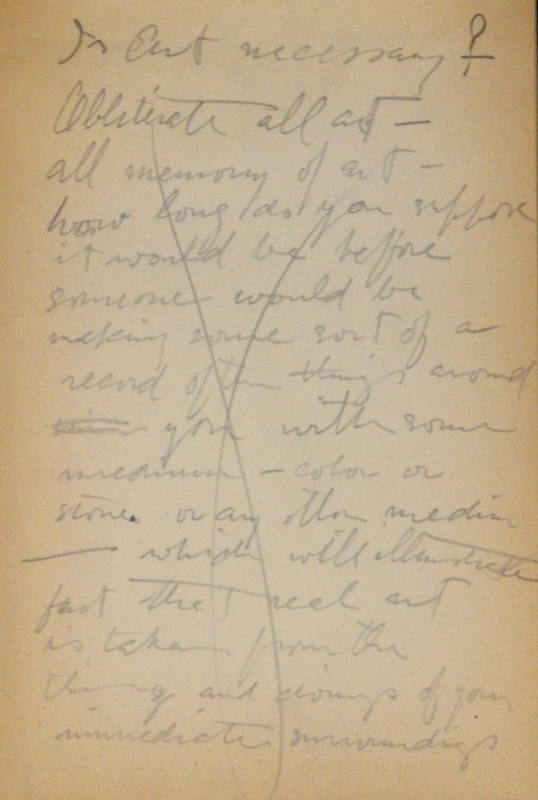 Is Art necessary?
Obliterate all art —
all memory of art —
how long do you suppose
it would be before
someone would be
making some sort of a
record of the things around
you with some
medium — color or
stone. or any other medium
— which will illustrate
fact that real art
is taken from the
things and doings of your
immediate surroundings